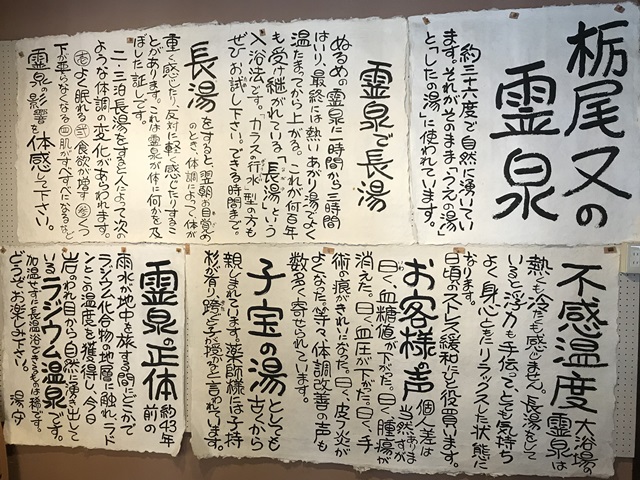 栃尾又の
霊泉
約三十六度で自然に湧いてい
ます。それがそのまま「うえの湯」
と「したの湯」に使われています。
霊泉で長湯
ぬるめの霊泉に一時間から三時間
はいり、最終には熱いあがり湯でよく
温たまってから上がる。これが何百年
も受け継がれている「長湯」という
入浴法です。「カラスの行水」型の方も
ぜひお試し下さい。できる時間まで。
長湯をすると、翌朝お目覚め
のとき、体調によって、体が
重く感じたり、反対に軽く感じたりするこ
とがあります。これは霊泉が体に何かを及
ぼした証しです。
二・三泊長湯をすると人によって次の
ような体調の変化があらわれます。
壱よく眠れる 弐食欲が増す 参むくつ
下が要らなくなる 四肌がすべすべになるなど。
霊泉の影響を体感して下さい。
不感温度 大浴場の
霊泉は
熱くも冷たくも感じません。長湯をして
いると浮力も手伝って、とても気持ち
よく身心ともにリラックスした状態に
なります。
日頃のストレス緩和にひと役買います。
お客様の声 個人差は
当然あります
が
曰く、血糖値が下がった。曰く、腫瘍が
消えた。曰く、血圧が下がった。曰く、手
術の痕がきれいになった。曰く、皮フ炎が
よくなった。等々、体調改善の声も
数多く寄せられています。
子宝の湯としても
古くから
親しまれています。薬師様には子持
杉が有り跨ぐと子が授かると言われています。
霊泉の正体 約43年
前の
雨水が地中を旅する間にどこかで
ラジウム化合物の地層に触れ、ラド
ンとこの温度を獲得し、今日
岩のわれ目から自然に湧き出して
いるラジウム温泉です。
加温せずに長温浴できるものは稀です。
どうぞお楽しみ下さい。 湯守